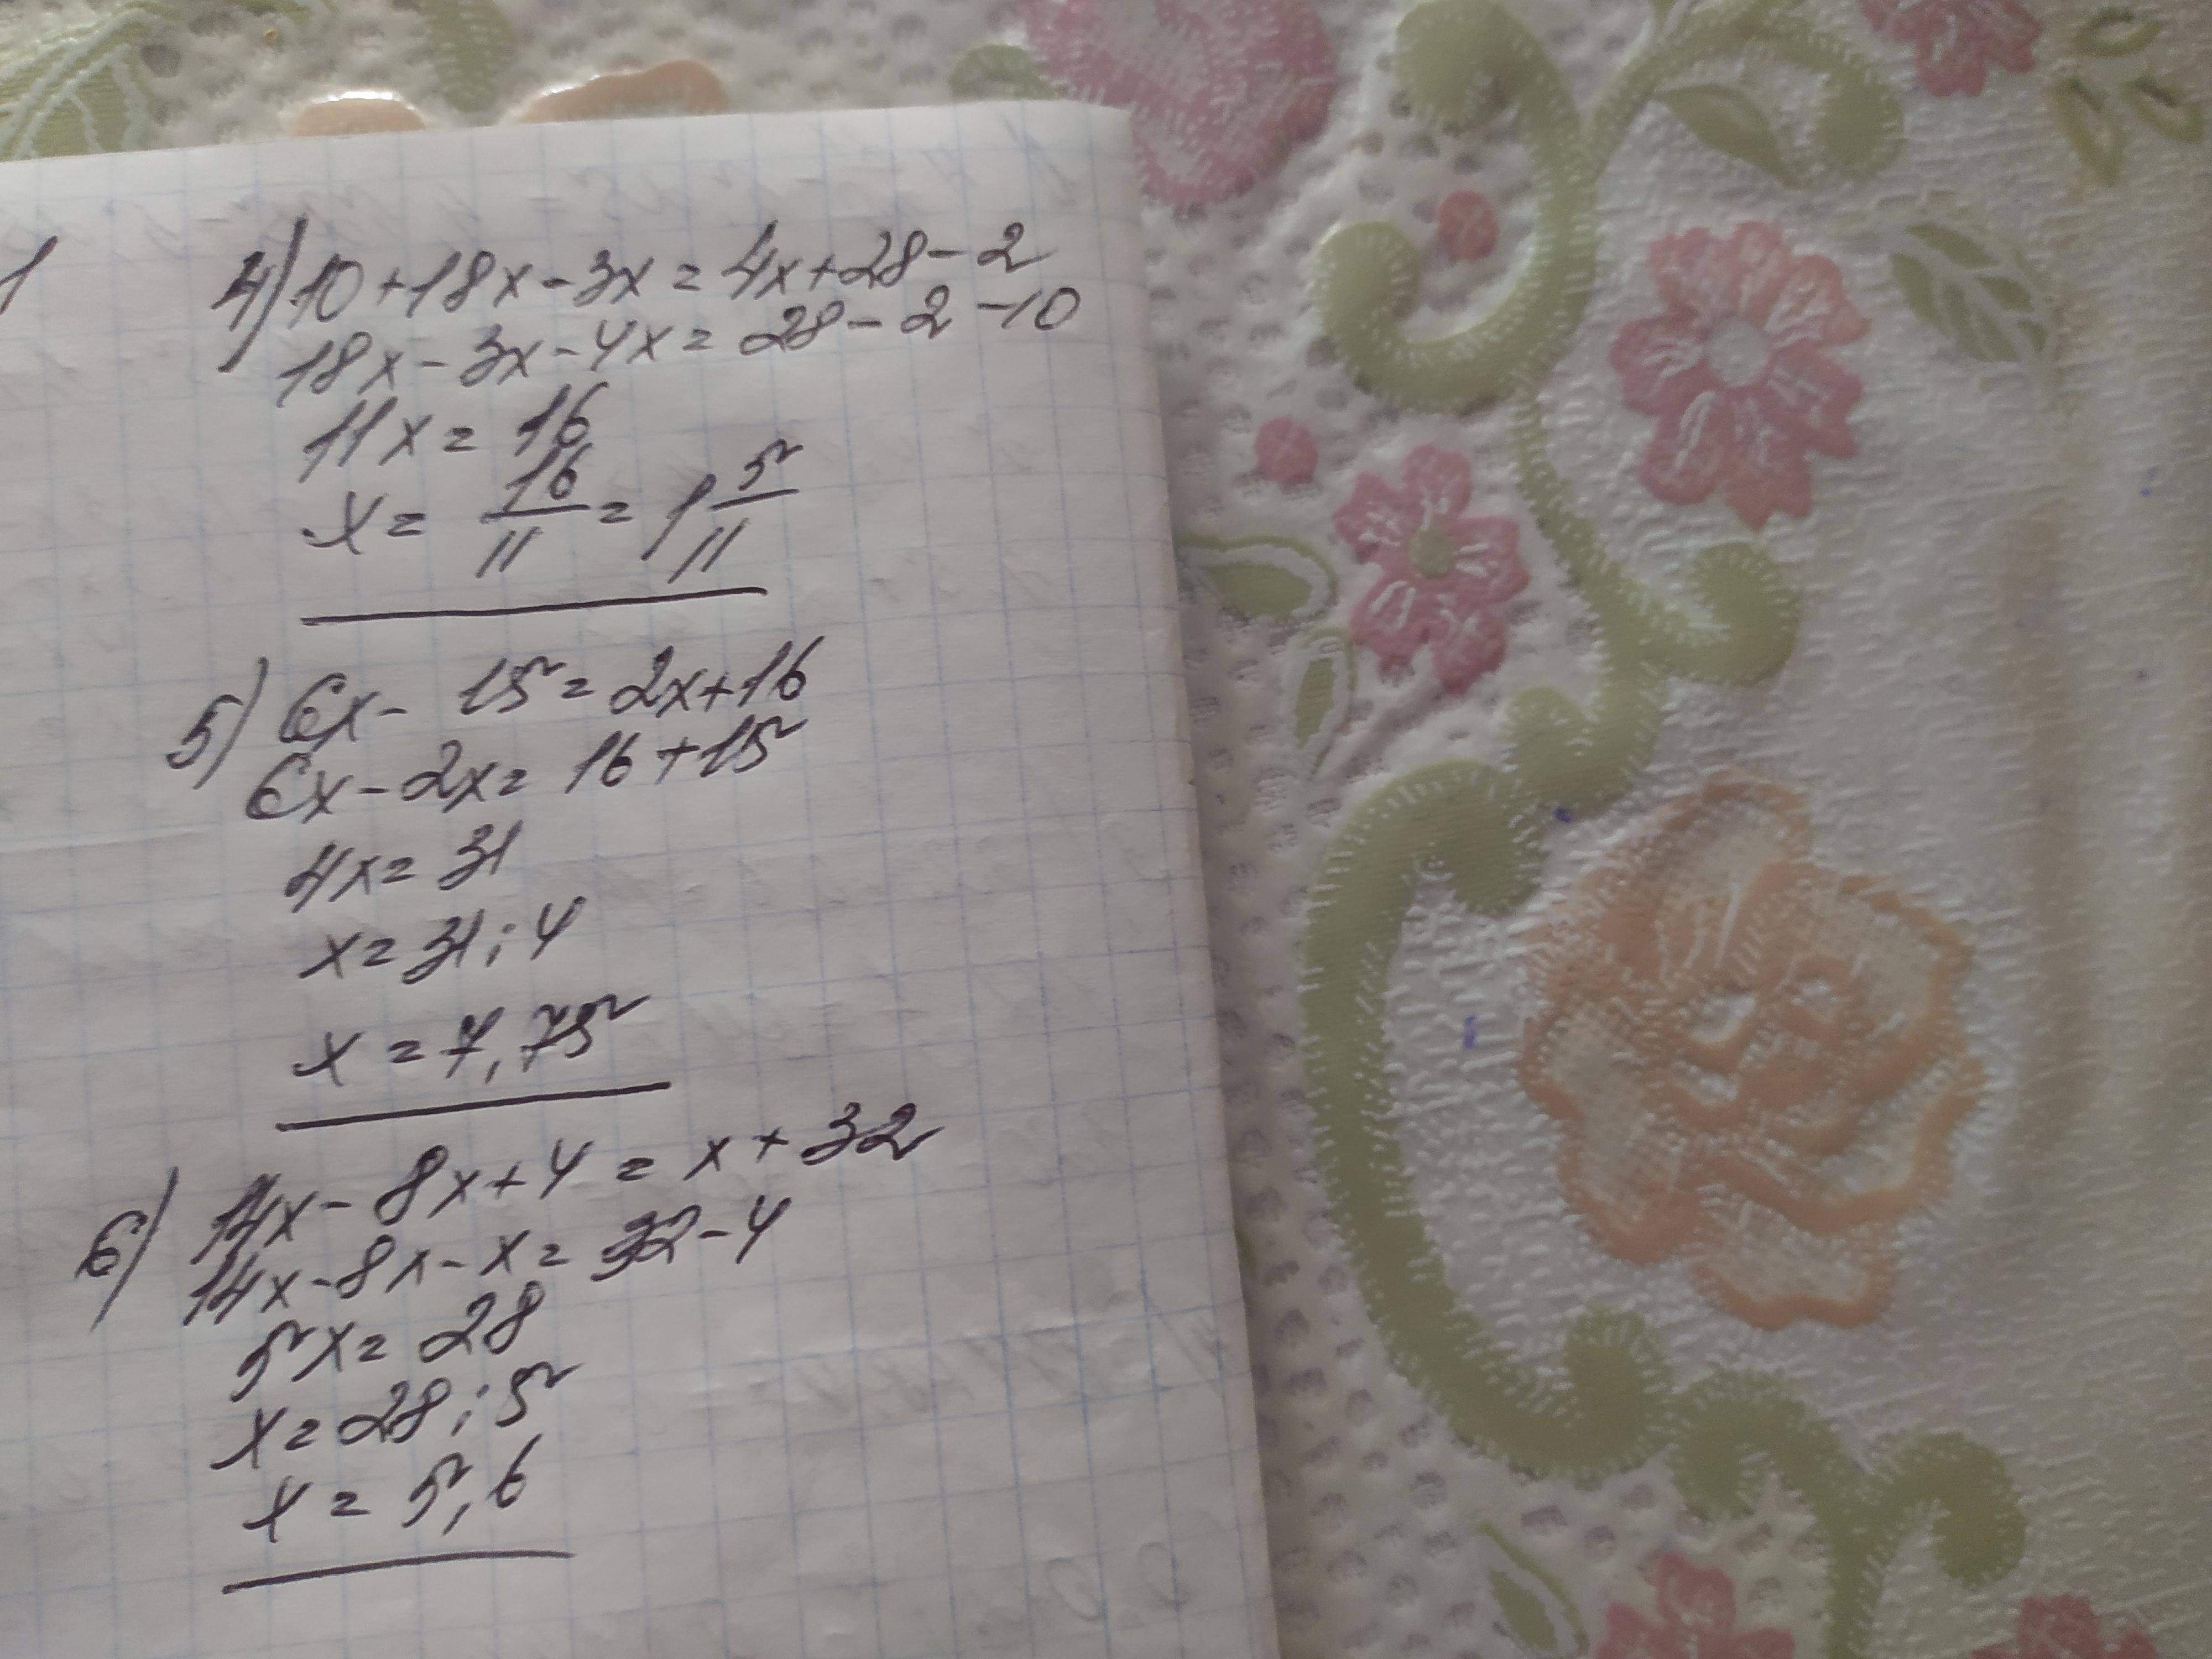 1
4) 10+18x-3x=4x+28-2
18x-3x-4x=28-2-10
11x=16
x=16/11=1 5/11
5) 6x-15=2x+16
6x-2x=16+15
4x=31
x=31:4
x=7,75
6) 14x-8x+4=x+32
14x-8x-x=32-4
5x=28
x=28:5
x=5,6